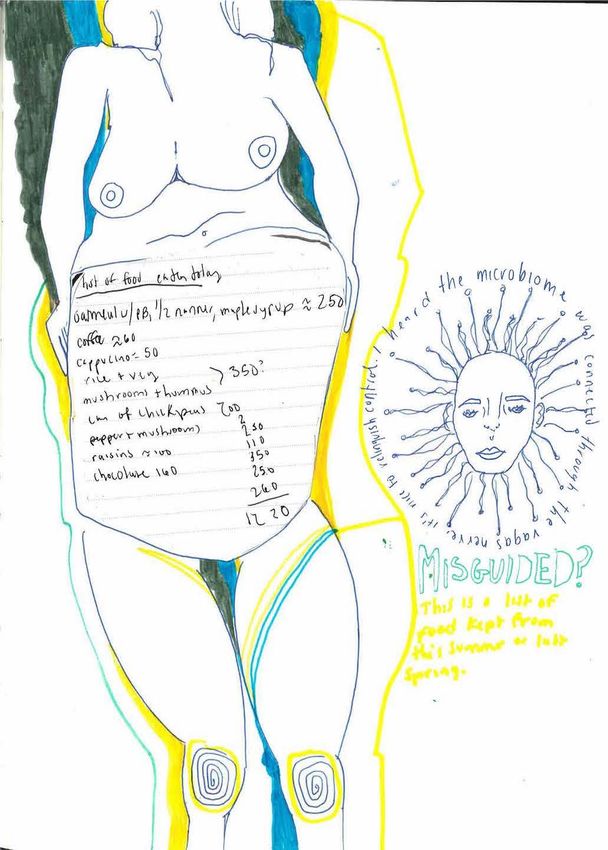 list of food eaten today
oatmeal w/PB, 1/2 nanner, maple syrup ≈ 250
coffee ≈ 60
cappucino = 50
rice + veg
mushrooms + hummus } 350?
can of chickpeas 200
pepper + mushrooms
raisins ≈ 100
chocolate 160
110
350
250
260
1220
I heard the microbiome was connected through the vagas nerve. it's nice to relinquish control.
MISGUIDED?
This is a list of
food kept from
this summer or last
spring.